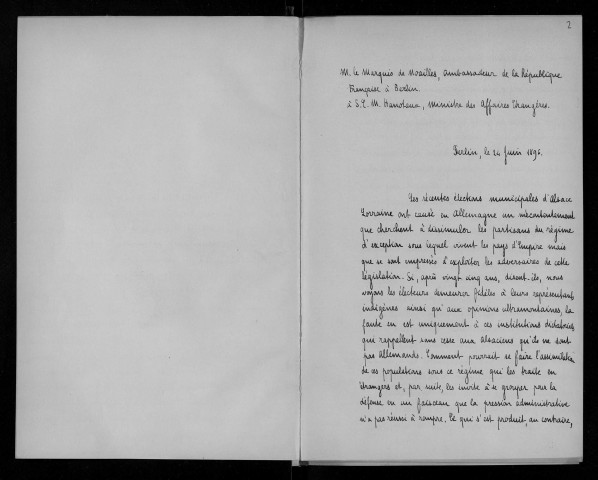 2
M. le Marquis de Noailles, ambassadeur de la République
Française à Berlin
à S.E. M. Hanotaux, Ministre des Affaires Etrangères.
Berlin, le 24 Juin 1896.
Les récentes élections municipales d'Alsace
Lorraine ont causé en Allemagne un mécontentement
que cherchent à dissimuler les partisans du régime
d'exception sous lequel vivent les pays d'Empire mais
que se sont empressés d'exploiter les adversaires de cette
législation. Si, après vingt cinq ans, disent-ils, nous
voyons les électeurs demeurer fidèles à leurs représentants
indigènes ainsi qu'aux opinions ultramontaines, la
faute en est uniquement à ces institutions dictatoriales
qui rappellent sans cesse aux Alsaciens qu'ils ne sont
pas Allemands. Comment pourrait se faire l'assimilation
de ces populations sous ce régime qui les traite en
étrangers et, par suite, les invite à se grouper pour la
défense en un faisceau que la pression administrative
n'a pas réussi à rompre. Ce qui s'est produit, au contraire,